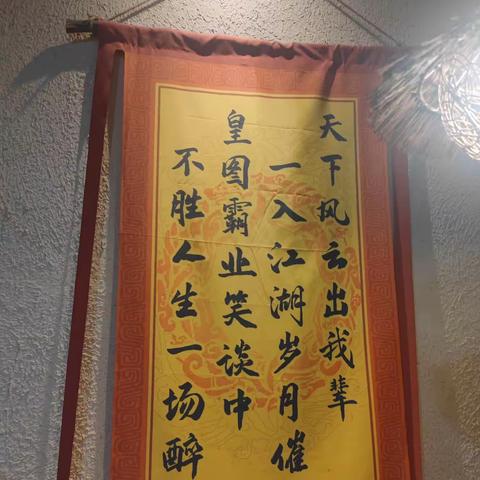 天下风云出我辈
一入江湖岁月催
皇图霸业笑谈中
不胜人生一场醉